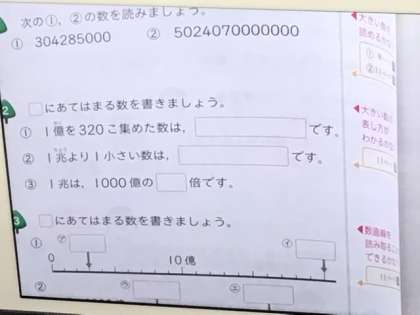 次の①, ②の数を読みましょう。
① 304285000 ② 5024070000000
2 □にあてはまる数を書きましょう。
① 1億を320こ集めた数は, です。
② 1兆より1小さい数は, です。
③ 1兆は, 1000億の 倍です。
3 □にあてはまる数を書きましょう。
① ㋐ ㋑
0 10億
② ㋒ ㋓
◀大きい数
読める
①
②
◀大きい数
表し方が
わかるか
◀数直線を
読み取る
できるか